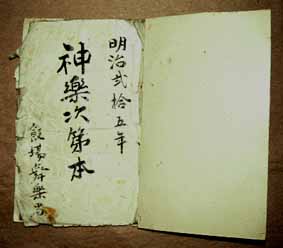 明治弐拾五年
神樂次第本
飯場舞樂